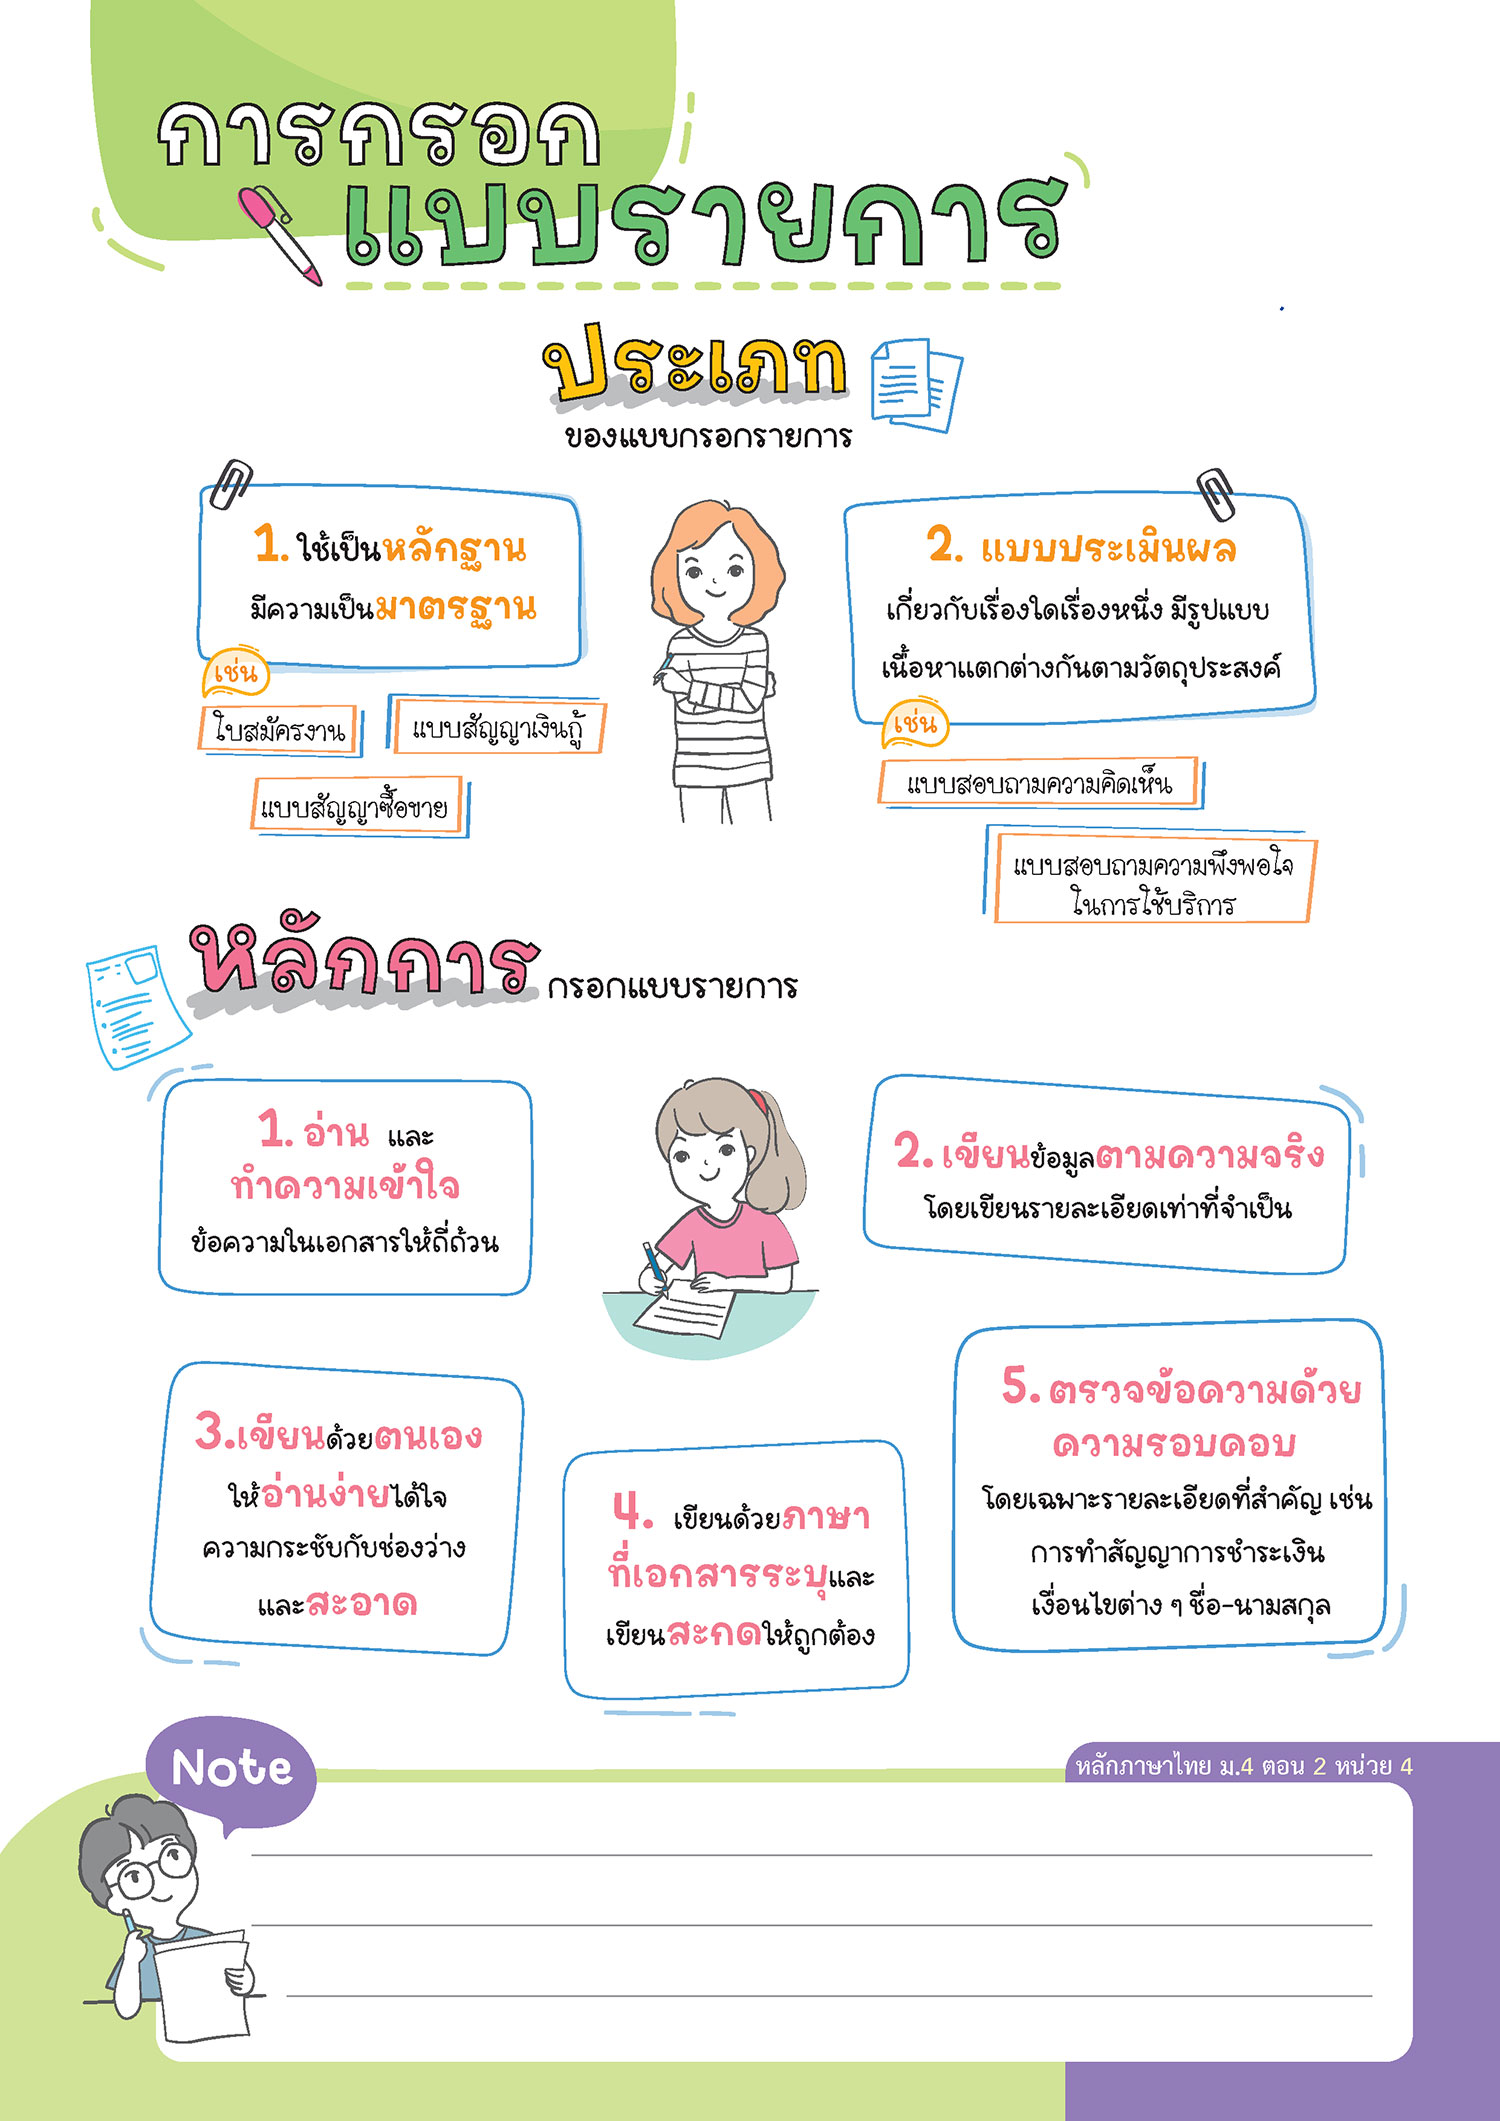 การกรอก
แบบรายการ
ประเภท
ของแบบกรอกรายการ
1. ใช้เป็นหลักฐาน
มีความเป็นมาตรฐาน
เช่น
ใบสมัครงาน
แบบสัญญาเงินกู้
แบบสัญญาซื้อขาย
2. แบบประเมินผล
เกี่ยวกับเรื่องใดเรื่องหนึ่ง มีรูปแบบ
เนื้อหาแตกต่างกันตามวัตถุประสงค์
เช่น
แบบสอบถามความคิดเห็น
แบบสอบถามความพึงพอใจ
ในการใช้บริการ
หลักการ กรอกแบบรายการ
1. อ่าน และ
ทำความเข้าใจ
ข้อความในเอกสารให้ถี่ถ้วน
2. เขียนข้อมูลตามความจริง
โดยเขียนรายละเอียดเท่าที่จำเป็น
3.เขียนด้วยตนเอง
ให้อ่านง่ายได้ใจ
ความกระชับกับช่องว่าง
และสะอาด
4. เขียนด้วยภาษา
ที่เอกสารระบุและ
เขียนสะกดให้ถูกต้อง
5. ตรวจข้อความด้วย
ความรอบคอบ
โดยเฉพาะรายละเอียดที่สำคัญ เช่น
การทำสัญญาการชำระเงิน
เงื่อนไขต่าง ๆ ชื่อ-นามสกุล
Note
หลักภาษาไทย ม.4 ตอน 2 หน่วย 4